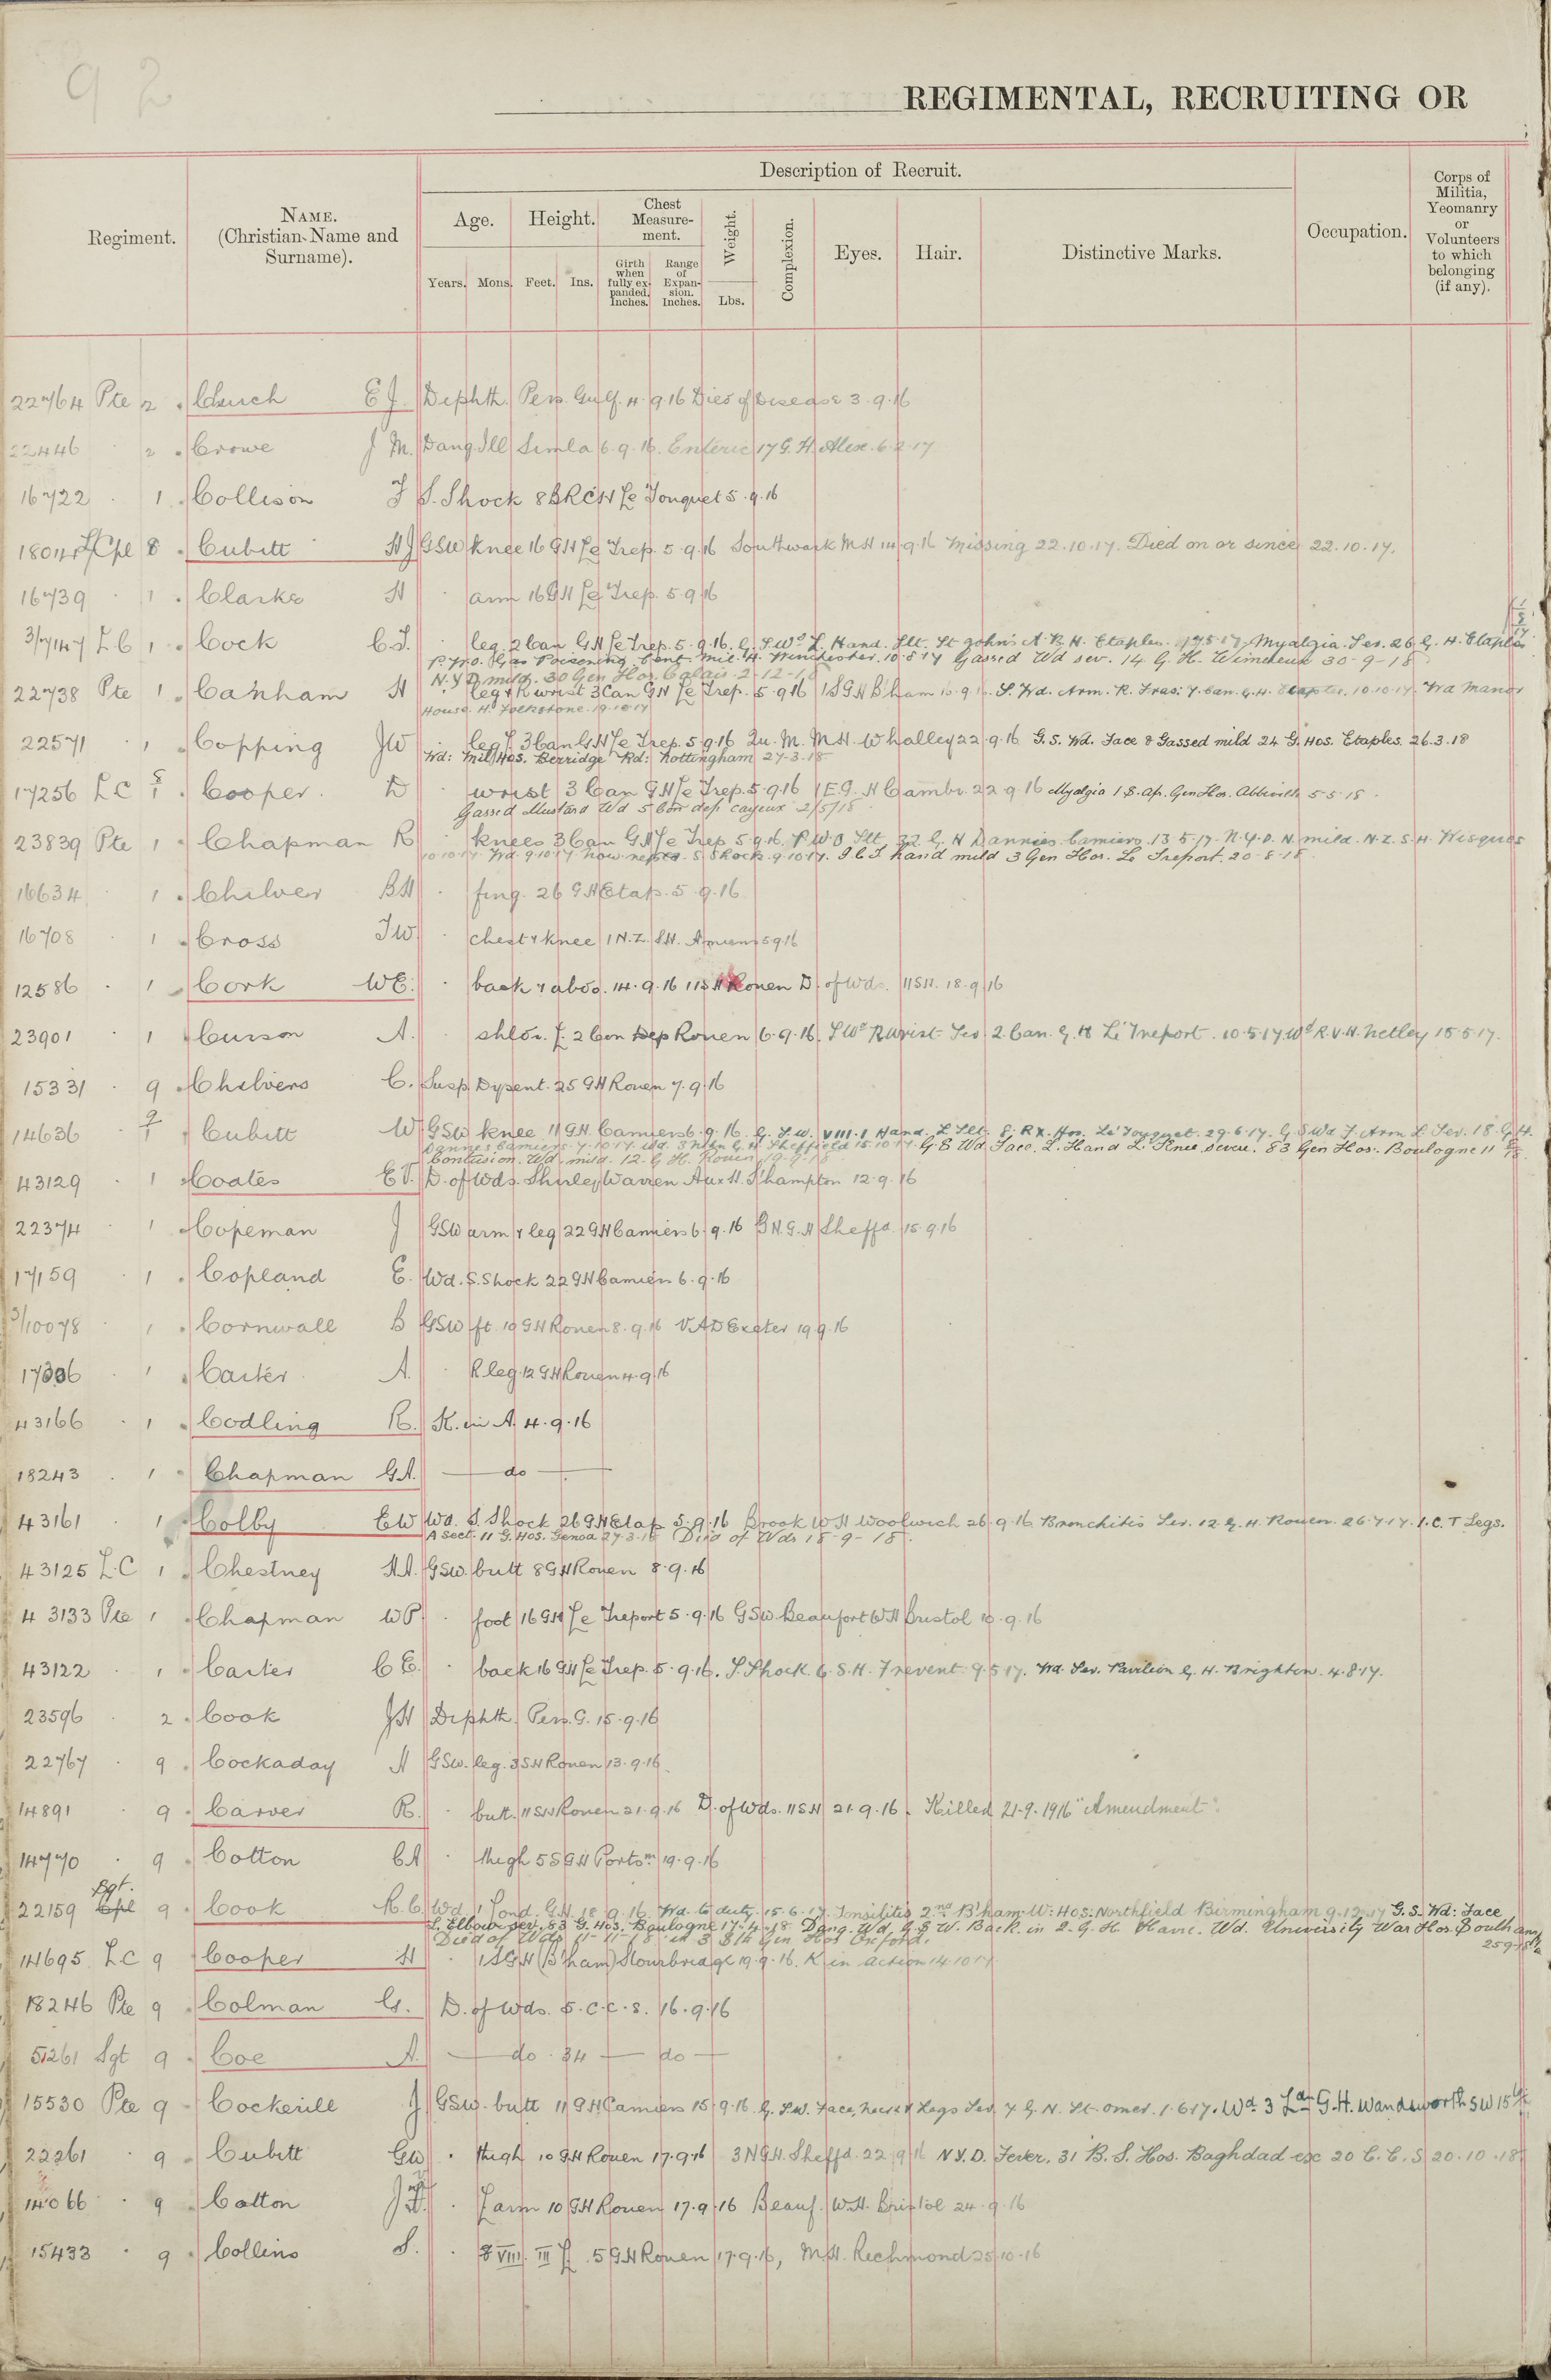 92
REGIMENTAL, RECRUITING OR
Description of Recruit.
Regiment.
NAME.
(Christian Name and
Surname).
Age.
Height.
Chest
Measure-
ment.
Weight.
Complexion.
Eyes.
Hair.
Distinctive Marks.
Occupation.
Corps of
Militia,
Yeomanry
or
Volunteers
to which
belonging
(if any).
Years.
Mons.
Feet.
Ins.
Girth
when
fully ex-
panded.
Inches.
Range
of
Expan-
sion.
Inches.
Lbs.
22764 Pte 2 Church E J. Diphth. Pers. Gulf. 4.9.16 Died of Disease 3.9.16
22446 · 2 Crowe J M. Dang. Ill Simla 6.9.16. Enteric 17 G.H. Alex. 6.2.17
16722 · 1 Collison F S. Shock 8 BRCH Le Touquet 5.9.16
L/Cpl 8 Cubitt H J GSW Knee 16 GH Le Trep. 5.9.16 Southwark M H 14.9.16 Missing 22.10.17. Died on or since 22.10.17.
16739 · 1 Clarke H · arm 16 GH Le Trep. 5.9.16
3/7147 L C 1 Cock C.J. · leg. 2 Can GH Le Trep. 5.9.16. G.S.Wd L. Hand. Slt. St John's A.B.H. Etaples. 17.5.17. Myalgia. Sev. 26 G.H. Etaples
P.U.O. Gas Poisoning Cent. Mil. H. Winchester. 10.8.17 Gassed Wd sev. 14 G.H. Wimereux 30-9-18
N.Y.D. mild. 30 Gen Hos. Calais. 2-12-18
22738 Pte 1 Canham H · leg & R wrist 3 Can GH Le Trep. 5.9.16 1 S G H B'ham S. Wd. Arm. R. Frac: 7. Can. G.H. Etaples. 10.10.17. Wd Manor
House. H. Folkstone. 19.10.17
22571 · 1 Copping J W · leg L 3 Can GH Le Trep. 5.9.16 Qu. M. M H. Whalley 22.9.16 G.S. Wd. Face & Gassed mild 24 G. Hos. Etaples. 26.3.18
Wd: Mil Hos. Berridge Rd: Nottingham 27-3-18
17256 L C 1 Cooper. D · wrist 3 Can GH Le Trep. 5.9.16 1 E.G.H Cambr. 22.9.16 Myalgia 1 S. Af. Gen Hos. Abbeville 5 5 18.
Gassed Mustard Wd 5 Con dep cayeux 2/5/18
23839 Pte 1 Chapman R · knees 3 Can GH Le Trep 5.9.16. P U O Slt. 22 G H Dannies Camiers 13.5.17. N.Y.D.N. mild. N.Z.S.H. Wisques
10.10.17. Wd. 9.10.17 now reptd. S Shock. 9.10.17. I.C.T. hand mild 3 Gen Hos. Le Treport. 20-8-18
16634 1 Chilver B H · fing. 26 GH Etap. 5.9.16
16708 · 1 Cross T W · chest & knee 1 N.Z. S H. Amiens 5 9 16
12586 · 1 Cork W E. · back & abdo. 14.9.16 11 S H Rouen D. of Wds. 11 S H. 18.9.16
23901 1 Curson A. shldr. L. 2 Con Dep Rouen 6.9.16. S Wd R Wrist Sev. 2. Can. G.H Le Treport. 10.5.17. Wd R.V.H. Netley 15.5.17.
15331 · 9 Chilvers C. Susp Dysent. 25 GH Rouen 7.9.16
14636 · 1 9 Cubitt W GSW knee 11 GH Camiers 6.9.16. G.S.W. VIII.I Hand. L Slt. 8. R X. Hos. Le Touquet. 29.6.17. G.S Wd F. Arm L Sev. 18 G.H.
Dannes Camiers. 7.10.17. Wd. 3 Nthn G.H. Sheffield 15.10.17. G S Wd Face. L. Hand L. Knee severe. 83 Gen Hos: Boulogne 11
Contusion. Wd. mild. 12. G H. Rouen. 19-9-18
43129 · 1 Coates E V. D. of Wds. Shirley Warren Aux H. S'hampton 12.9.16
22374 1 Copeman J GSW arm & leg 22 GH Camiers 6.9.16 3 N.G.H Sheffd. 15 9 16
17159 · 1 Copland E. Wd. S. Shock 22 GH Camiers 6.9.16
3/10078 · 1 Cornwall B GSW ft. 10 GH Rouen 8.9.16 V.A.D Exeter 19.9.16
· 1 Carter A. · R leg. 12 GH Rouen 4.9.16
43166 · 1 Codling R. K. in A. 4.9.16
18243 · 1 Chapman G A. — do —
43161 · 1 Colby E W Wd. S. Shock 26 GH Etap 5.9.16 Brook W H Woolwich 26.9.16. Bronchitis Sev. 12 G.H. Rouen. 26.7.17. I.C.T Legs.
A Sect. 11 G. Hos. Genoa 27-3-18 Died of Wds 18-9-18.
43125 L.C 1 Chestney H A. GSW. butt 8 GH Rouen 8.9.16
43133 Pte 1 Chapman W P. · foot 16 GH Le Treport 5.9.16 GSW. Beaufort W H Bristol 10.9.16
43122 · 1 Carter C E. · back 16 GH Le Trep. 5.9.16. S. Shock. 6.S.H. Frevent. 9.5.17. Wd. Sev. Pavilion G.H. Brighton. 4.8.17.
23596 2 Cook J H Diphth. Pers. G. 15.9.16
22767 · 9 Cockaday H GSW. leg. 3 S H Rouen 13.9.16.
14891 · 9 Carver R. · butt. 11 S H Rouen 21.9.16 D. of Wds. 11 S H 21.9.16. Killed 21.9.1916 "Amendment".
14770 · 9 Cotton C A · thigh 5 S G H Portsm 19.9.16
22159 Sgt. Cpl 9 Cook R. C. Wd. 1 Lond. G.H. 18.9.16. Wd. to duty. 15.6.17. Tonsilitis 2nd B'ham: W: HOS: Northfield Birmingham 9.12.17 G.S. Wd: Face
L. Elbow sev. 83 G. Hos. Boulogne 17.4.18 Dang. Wd. G S W. Back. in 2. G. H. Havre. Wd. University War Hos. Southam
Died of Wds 11-11-18 in 3 Sth Gen Hos Oxford.
14695 L.C 9 Cooper H · 1 S G H (B'ham) Stourbridge 19.9.16. K in action 14.10.17
18246 Pte 9 Colman G. D. of Wds. 5. C.C.S. 16.9.16
51261 Sgt 9 Coe A. — do. 34 — do —
15530 Pte 9 Cockerill J GSW. butt 11 GH Camiers 15.9.16. G.S.W. Face, Neck & Legs Sev. 7 G.H. St. Omer. 1.6.17. Wd 3 Ldn G.H. Wandsworth SW 15
22261 · 9 Cubitt G W · thigh 10 GH Rouen 17.9.16 3 N G H. Sheffd. 22.9.16 N.Y.D. Fever. 31 B. S. Hos. Baghdad ex 20 C.C.S 20.10.18
14066 · 9 Catton J · L arm 10 GH Rouen 17.9.16 Beauf. W.H. Bristol 24.9.16
15433 · 9 Collins S. · VIII. III L. 5 GH Rouen 17.9.16, M H. Richmond 25.10.16